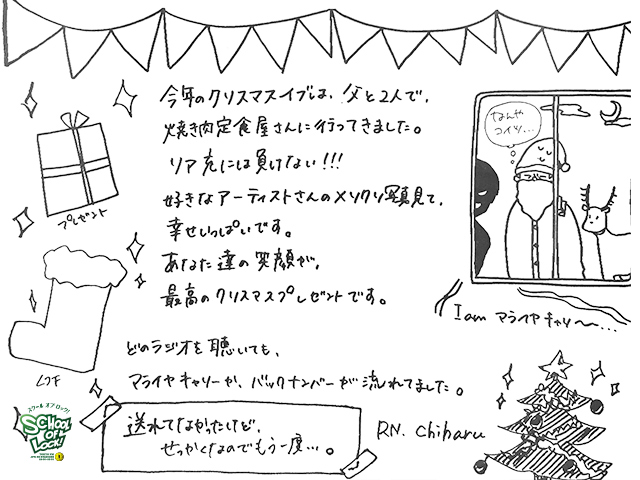 今年のクリスマスイブは、父と2人で、
焼き肉定食屋さんに行ってきました。
リア充には負けない!!!
好きなアーティストさんのメリクリ写真見て、
幸せいっぱいです。
あなた達の笑顔が、
最高のクリスマスプレゼントです。
なんや
コイツ...
プレゼント
I am マライヤキャリ〜...
どのラジオを聴いても、
マライヤキャリーか、バックナンバーが流れてました。
スクール オブ ロック!
SCHOOL
OF
LOCK!
送れてなかったけど、
せっかくなのでもう一度...。
RN. Chiharu